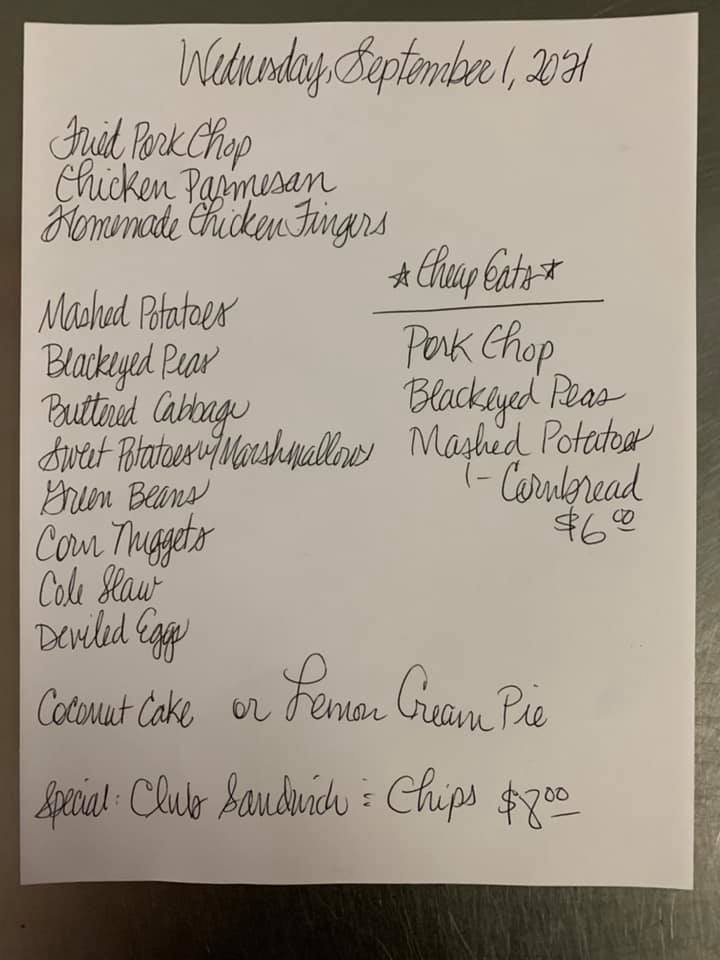 Wednesday, September 1, 2021
Fried Pork Chop
Chicken Parmesan
Homemade Chicken Fingers
Mashed Potatoes
Blackeyed Peas
Buttered Cabbage
Sweet Potatoes w/ Marshmallows
Green Beans
Corn Nuggets
Cole Slaw
Deviled Eggs
☆ Cheap Eats ☆
Pork Chop
Blackeyed Peas
Mashed Potatoes
1- Cornbread
$6.00
Coconut Cake or Lemon Cream Pie
Special: Club Sandwich & Chips $8.00